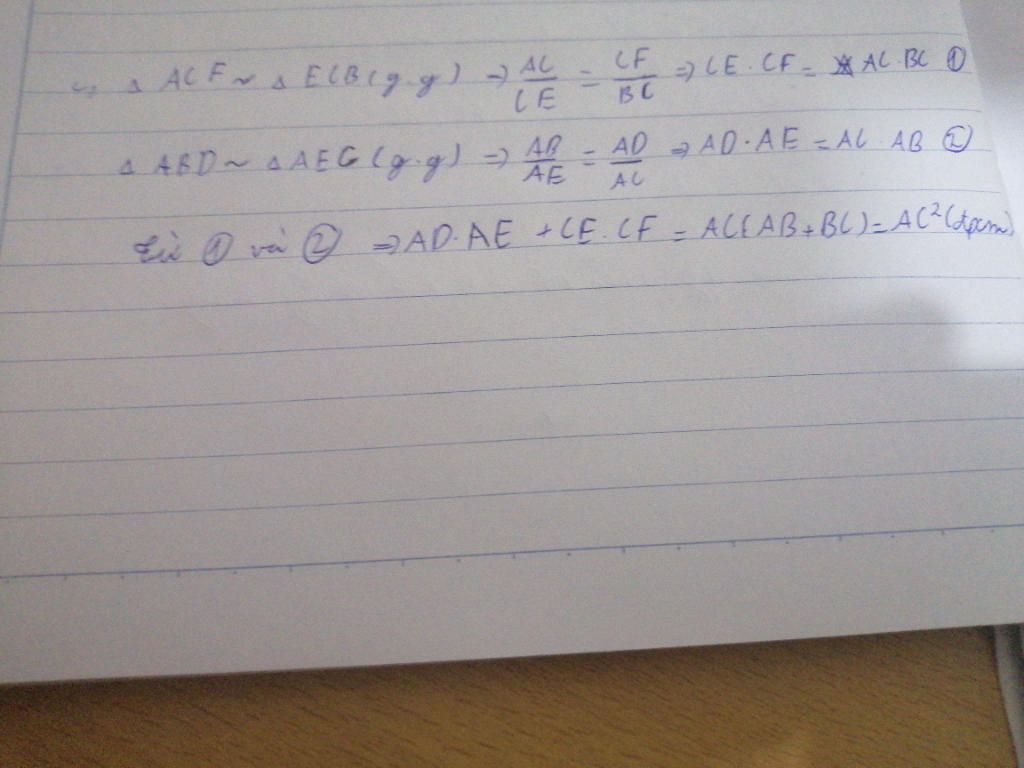 c, Δ ACF ~ Δ ECB (g.g) => AC/CE = CF/BC => CE . CF = AC . BC ①
Δ ABD ~ Δ AEC (g.g) => AB/AE = AD/AC => AD . AE = AC . AB ②
Từ ① và ② => AD.AE + CE.CF = AC(AB+BC) = AC² (đpcm)